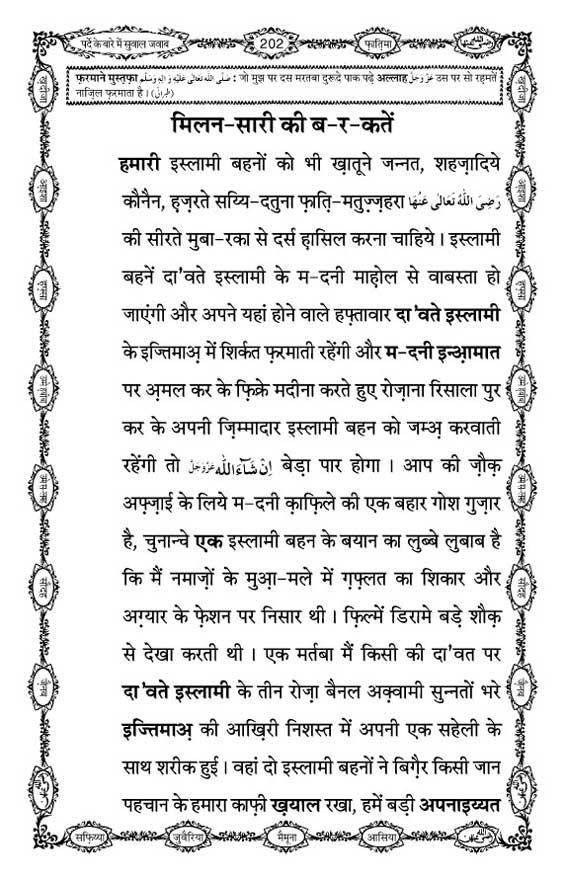 पर्दे के बारे में सुवाल जवाब 202 फ़ातिमा
फ़रमाने मुस्तफ़ा صَلَّى اللهُ تَعَالٰى عَلَيْهِ وَاٰلِهٖ وَسَلَّم : जो मुझ पर दस मरतबा दुरूदे पाक पढ़े अल्लाह عَزَّوَجَلَّ उस पर सो रहमतें
नाज़िल फ़रमाता है। (طبرانی)
मिलन-सारी की ब-र-कतें
हमारी इस्लामी बहनों को भी ख़ातूने जन्नत, शहज़ादिये
कौनैन, हज़रते सय्यि-दतुना फ़ाति-मतुज़्ज़हरा رَضِىَ اللّٰهُ تَعَالٰى عَنْهَا
की सीरते मुबा-रका से दर्स हासिल करना चाहिये। इस्लामी
बहनें दा'वते इस्लामी के म-दनी माहोल से वाबस्ता हो
जाएंगी और अपने यहां होने वाले हफ्तावार दा'वते इस्लामी
के इज्तिमाअ़ में शिर्कत फ़रमाती रहेंगी और म-दनी इन्आ़मात
पर अ़मल कर के फ़िक्रे मदीना करते हुए रोज़ाना रिसाला पुर
कर के अपनी ज़िम्मादार इस्लामी बहन को जम्अ़ करवाती
रहेंगी तो اِنْ شَآءَاللّٰه عَزَّوَجَلَّ बेड़ा पार होगा। आप की ज़ौक़
अफ़्ज़ाई के लिये म-दनी क़ाफ़िले की एक बहार गोश गुज़ार
है, चुनान्चे एक इस्लामी बहन के बयान का लुब्बे लुबाब है
कि मैं नमाज़ों के मुआ़-मले में ग़फ़्लत का शिकार और
अग़्यार के फ़ेशन पर निसार थी। फ़िल्में डिरामे बड़े शौक़
से देखा करती थी। एक मर्तबा मैं किसी की दा'वत पर
दा'वते इस्लामी के तीन रोज़ा बैनल अक़्वामी सुन्नतों भरे
इज्तिमाअ़ की आख़िरी निशस्त में अपनी एक सहेली के
साथ शरीक हुई। वहां दो इस्लामी बहनों ने बिग़ैर किसी जान
पहचान के हमारा काफ़ी ख़याल रखा, हमें बड़ी अपनाइय्यत
सफ़िय्या जुवैरिया मैमूना आसिया